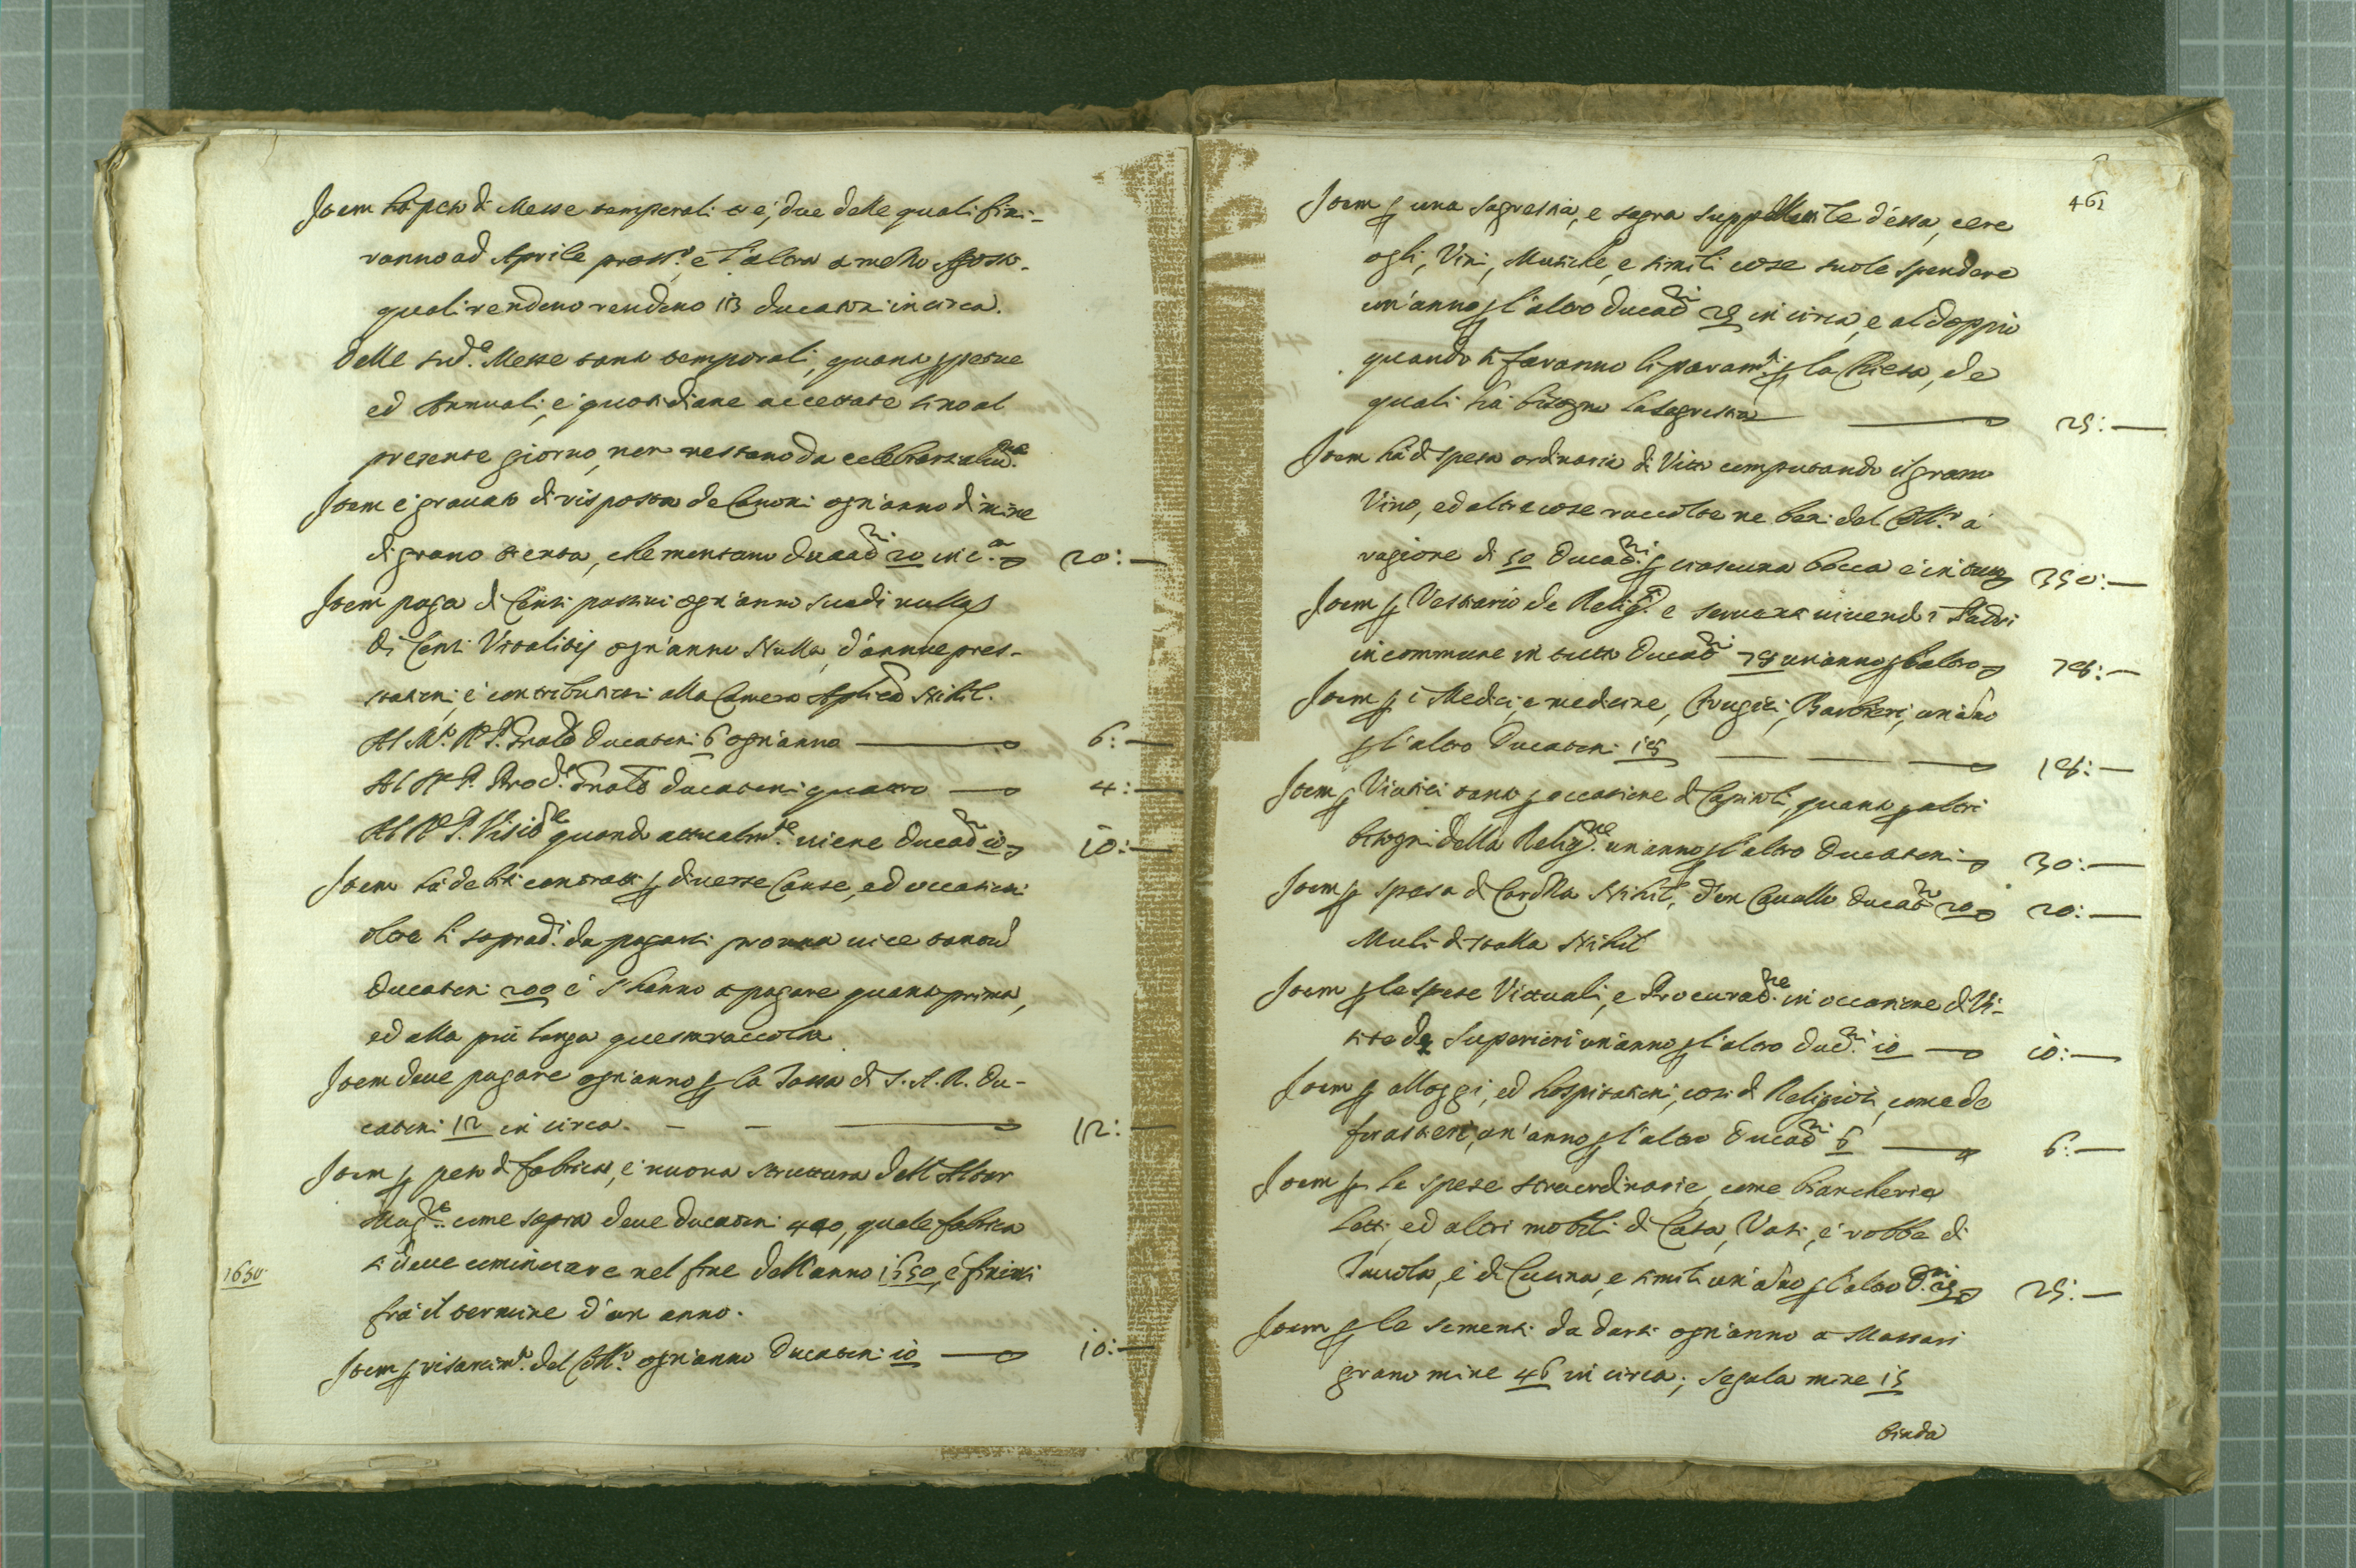 Item hà peso di Messe temporali tre, due delle quali fini-
ranno ad Aprile pross.o, e l'altra a mezzo Agosto.
quali rendono rendono 13 ducatoni incirca.
delle sud.e Messe tanto temporali, quanto ꝑpetue
ed Annuali, e quotidiane accettate sino al
presente giorno, non restano da celebrarsi alcu.ne
Item è gravato di risposta de Canoni ogn'anno di mine
di grano trenta, che montano ducat.ni 20 in c.a 20:—
Item paga di Censi passivi ogn'anno scudi nulla
Di Censi Vitalitij ogn'anno Nulla, d'annue pres-
tationi, e contributioni alla Camera Aplica Nihil.
Al M.o R.P. Pnale ducatoni 6 ogn'anno 6:—
Al R.P. Prod.e Pnale ducatoni quattro 4:—
Al R.P. Visit.re quando attualm.te viene ducat.ni 10 10:—
Item hà debiti contratti ꝑ diverse Cause, ed occasioni
oltre li soprad.i da pagarsi pro una vice tantu
ducatoni 200 e s'hanno a pagare quanto prima,
ed alla più longa questa raccolta
Item deve pagare ogn'anno ꝑ la Tassa di S.A.R. du-
catoni 12 in circa. 12:—
Item ꝑ peso di fabrica, e nuova struttura dell'Altar
Magg.re come sopra deve ducatoni 400, quale fabrica
1650 si deve cominciare nel fine dell'anno 1650, e finirsi
frà il termine d'un anno.
Item ꝑ risarcim.to del Coll.o ogn'anno ducatoni 10 10:—
461
Item ꝑ una sagrestia, e sagra suppellettile d'essa, cere
ogli, Vini, Musiche, e simili cose suole spendere
un'anno ꝑ l'altro ducat.ni 25 in circa, e al doppio
quando si faranno li param.ti ꝑ la Chiesa, de
quali hà bisogno la sagrestia 25:—
Item hà di spesa ordinaria di Vitto computando il grano
Vino, ed altre cose raccolte ne beni del Coll.o a
ragione di 50 ducat.ni ꝑ ciascuna bocca e in tutto 350:—
Item ꝑ Vestiario de Relig.si e servienti vivendo i Padri
in commune in tutto ducat.ni 75 un'anno ꝑ l'altro 75:—
Item ꝑ i Medici, e medicine, Cirugici, Barbieri, un ano
ꝑ l'altro ducatoni 15 15:—
Item ꝑ Viatici tanto ꝑ occasione di Capitoli, quanto ꝑ altri
bisogni della Relig.ne un'anno ꝑ l'altro ducatoni 30:—
Item ꝑ spesa di Carozza Nihil, d'un Cavallo ducat.ni 20 20:—
Muli di stalla Nihil
Item ꝑ le spese Vittuali, e Procurat.ne in occasione di Vi-
site de Superiori un'anno ꝑ l'altro duc.ni 10 10:—
Item ꝑ alloggi, ed hospitationi, cosi di Religiosi, come de
forastieri, un'anno ꝑ l'altro ducat.ni 6 6:—
Item ꝑ le spese straordinarie, come biancheria
Letti, ed altri mobili di Casa, Vasi, e robbe di
Tavola, e di Cucina, e simili un'ano ꝑ l'altro d.ni 25 25:—
Item ꝑ le sementi da darsi ogn'anno a Massari
grano mine 46 in circa; segala mine 15
biada